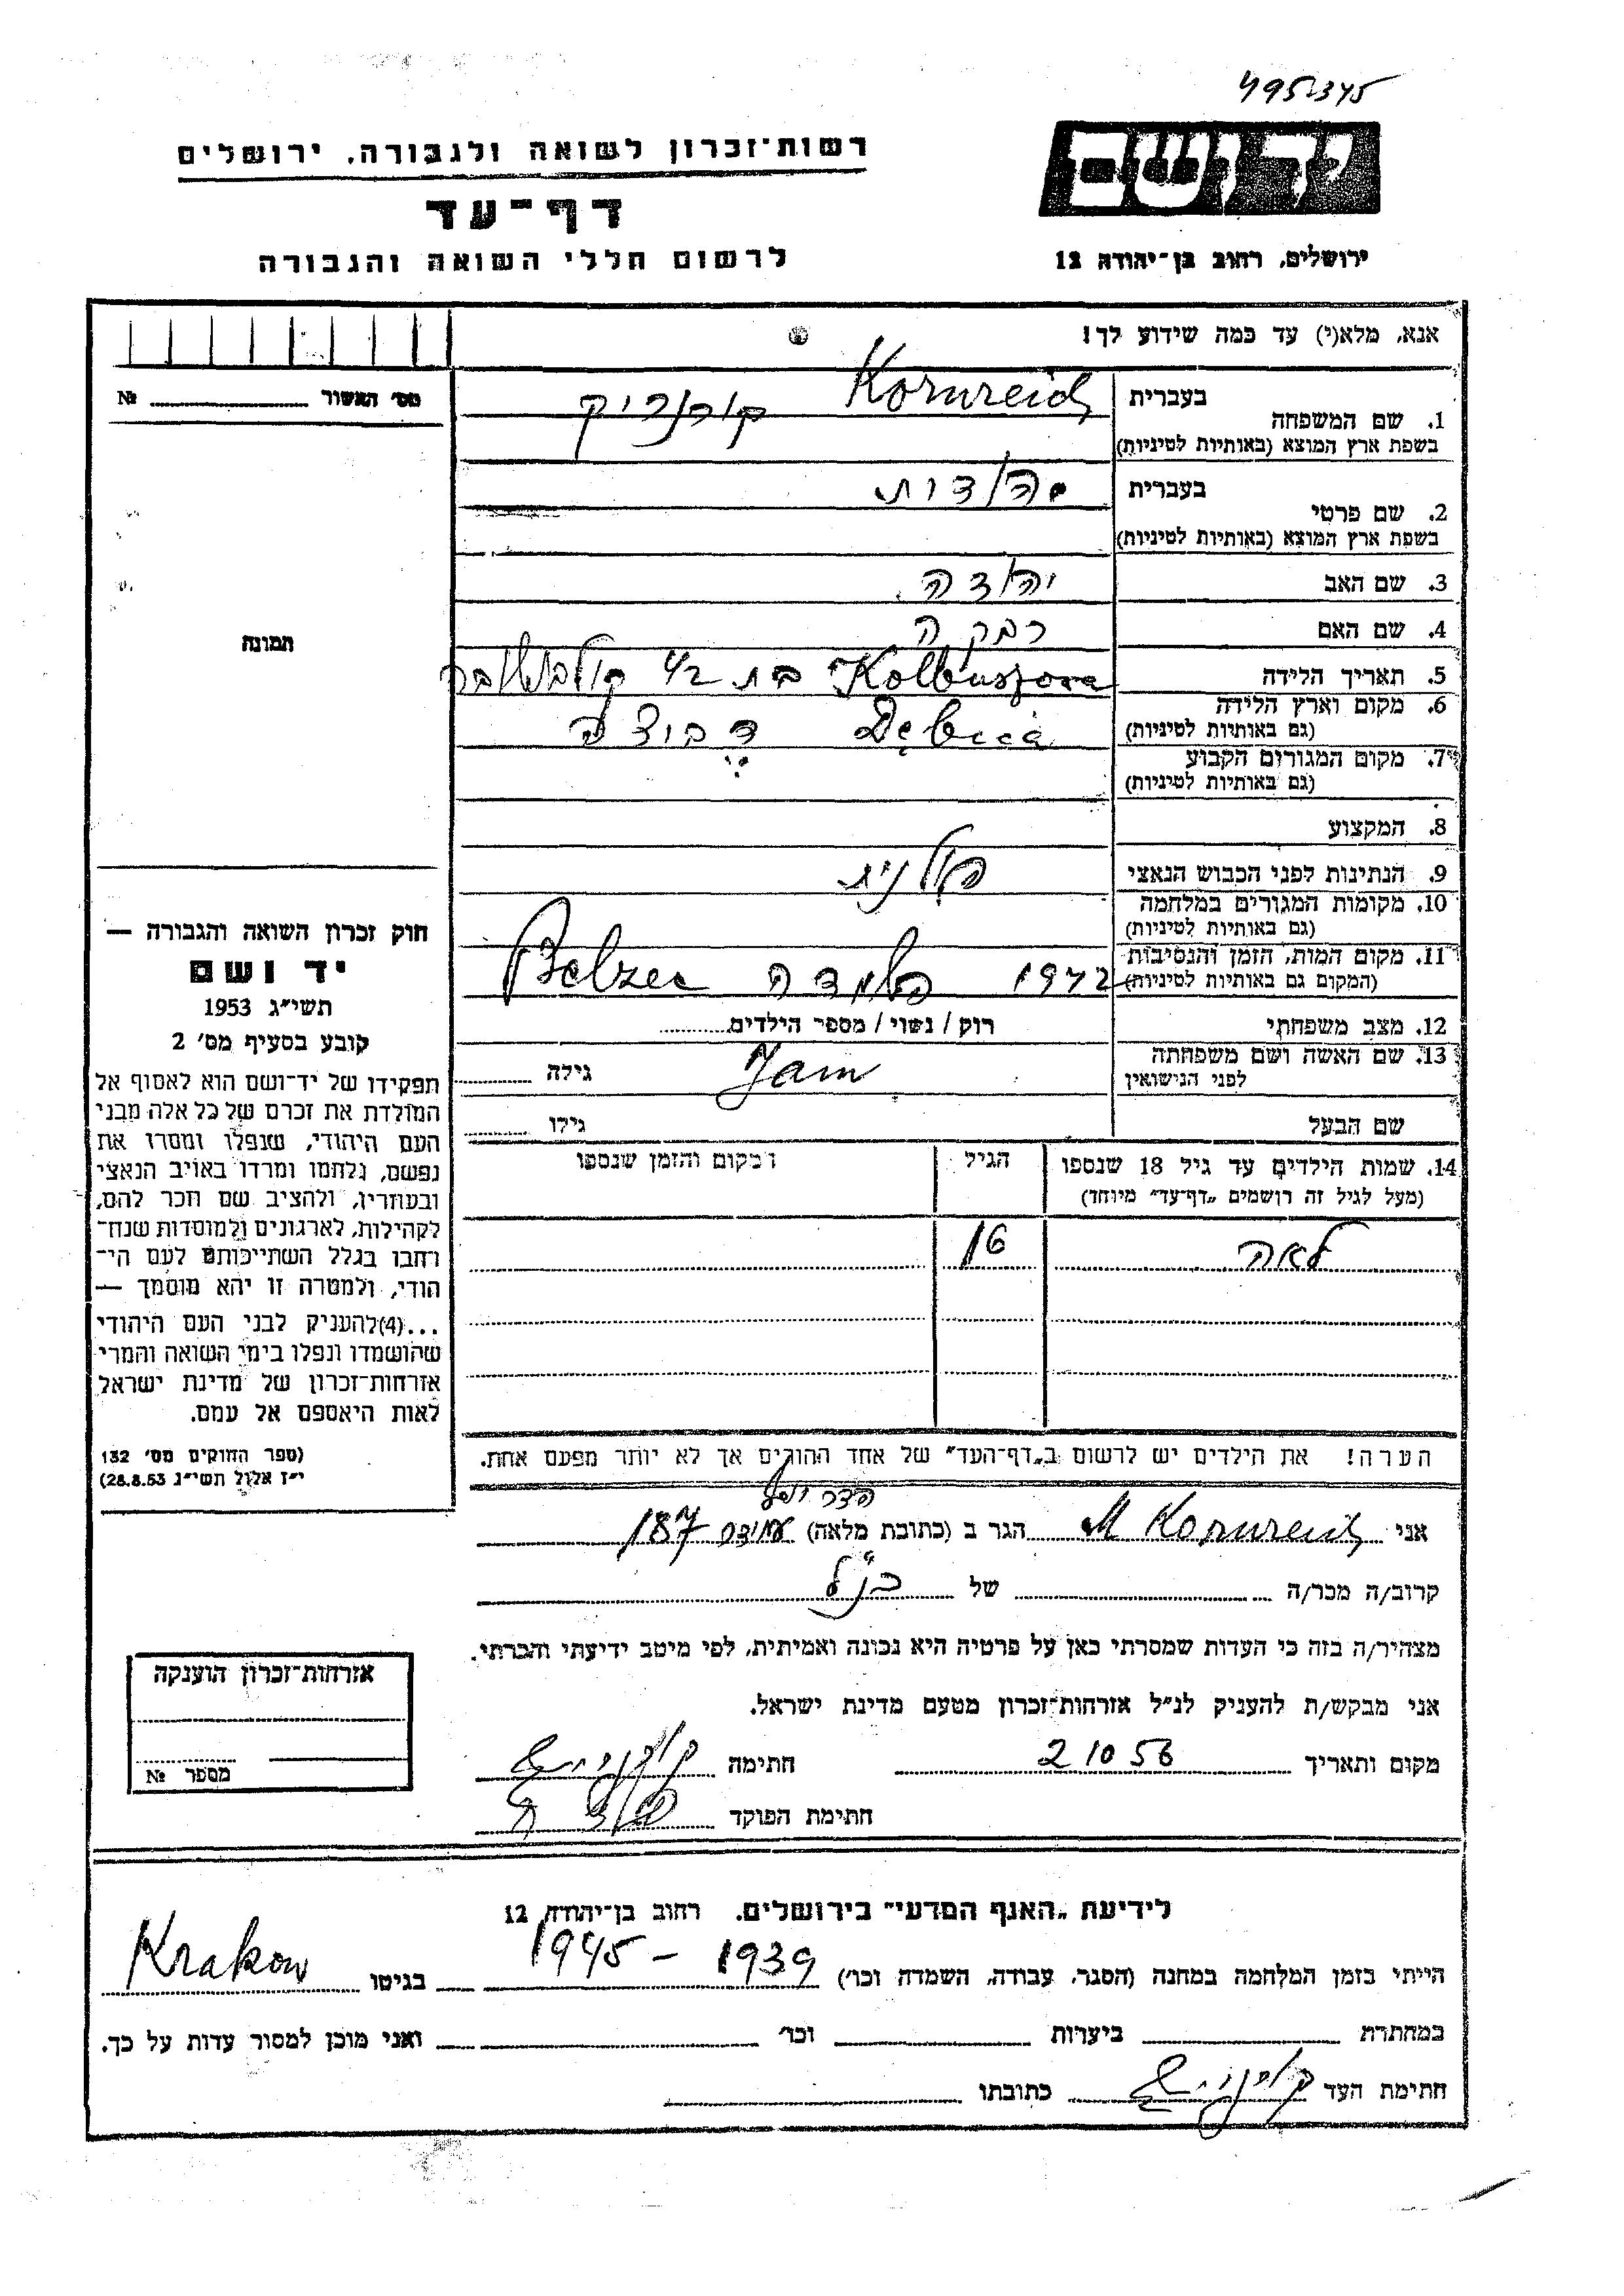 495345
יד ושם
רשות־זכרון לשואה ולגבורה, ירושלים
דף־עד
לרשום חללי השואה והגבורה
ירושלים, רחוב בן־יהודה 12
אנא, מלא(י) עד כמה שידוע לך!
מס' האשור № 
1. שם המשפחה
בעברית Kornreich קורנריק
בשפת ארץ המוצא (באותיות לטיניות)
2. שם פרטי
בעברית יהודית
בשפת ארץ המוצא (באותיות לטיניות)
3. שם האב יהודה
4. שם האם רבקה
5. תאריך הלידה
6. מקום וארץ הלידה
(גם באותיות לטיניות)
Kolbuszowa בת 42
7. מקום המגורים הקבוע
(גם באותיות לטיניות)
Dębica דביצה
8. המקצוע
9. הנתינות לפני הכבוש הנאצי פולנית
10. מקומות המגורים במלחמה
(גם באותיות לטיניות)
11. מקום המות, הזמן והנסיבות
(המקום גם באותיות לטיניות)
1942 השמדה Belzec
12. מצב משפחתי רוק / נשוי / מספר הילדים
13. שם האשה ושם משפחתה
לפני הנישואין
Jam גילה
שם הבעל גילו
14. שמות הילדים עד גיל 18 שנספו
(מעל לגיל זה רושמים „דף־עד" מיוחד)
הגיל
המקום והזמן שנספו
לאה 16
הערה! את הילדים יש לרשום ב„דף־העד" של אחד ההורים אך לא יותר מפעם אחת.
תמונה
חוק זכרון השואה והגבורה —
יד ושם
תשי"ג 1953
קובע בסעיף מס' 2
תפקידו של יד־ושם הוא לאסוף אל
המולדת את זכרם של כל אלה מבני
העם היהודי, שנפלו ומסרו את
נפשם, נלחמו ומרדו באויב הנאצי
ובעוזריו, ולהציב שם וזכר להם,
לקהילות, לארגונים ולמוסדות שנח־
רבו בגלל השתייכותם לעם הי־
הודי, ולמטרה זו יהא מוסמך —
...(4)להעניק לבני העם היהודי
שהושמדו ונפלו בימי השואה והמרי
אזרחות־זכרון של מדינת ישראל
לאות היאספם אל עמם.
(ספר החוקים מס' 132
י"ז אלול תשי"ג 28.8.53)
אני M Kornreich הגר ב (כתובת מלאה) 187
קרוב/ה מכר/ה של הנ"ל
מצהיר/ה בזה כי העדות שמסרתי כאן על פרטיה היא נכונה ואמיתית, לפי מיטב ידיעתי והכרתי.
אני מבקש/ת להעניק לנ"ל אזרחות־זכרון מטעם מדינת ישראל.
מקום ותאריך 2 10 56 חתימה
חתימת הפוקד
אזרחות־זכרון הוענקה
מספר №
לידיעת „האגף המדעי" בירושלים, רחוב בן־יהודה 12
הייתי בזמן המלחמה במחנה (הסגר, עבודה, השמדה וכו') 1939 – 1945 בגיטו Krakow
במחתרת ביערות וכו' ואני מוכן למסור עדות על כך.
חתימת העד כתובתו